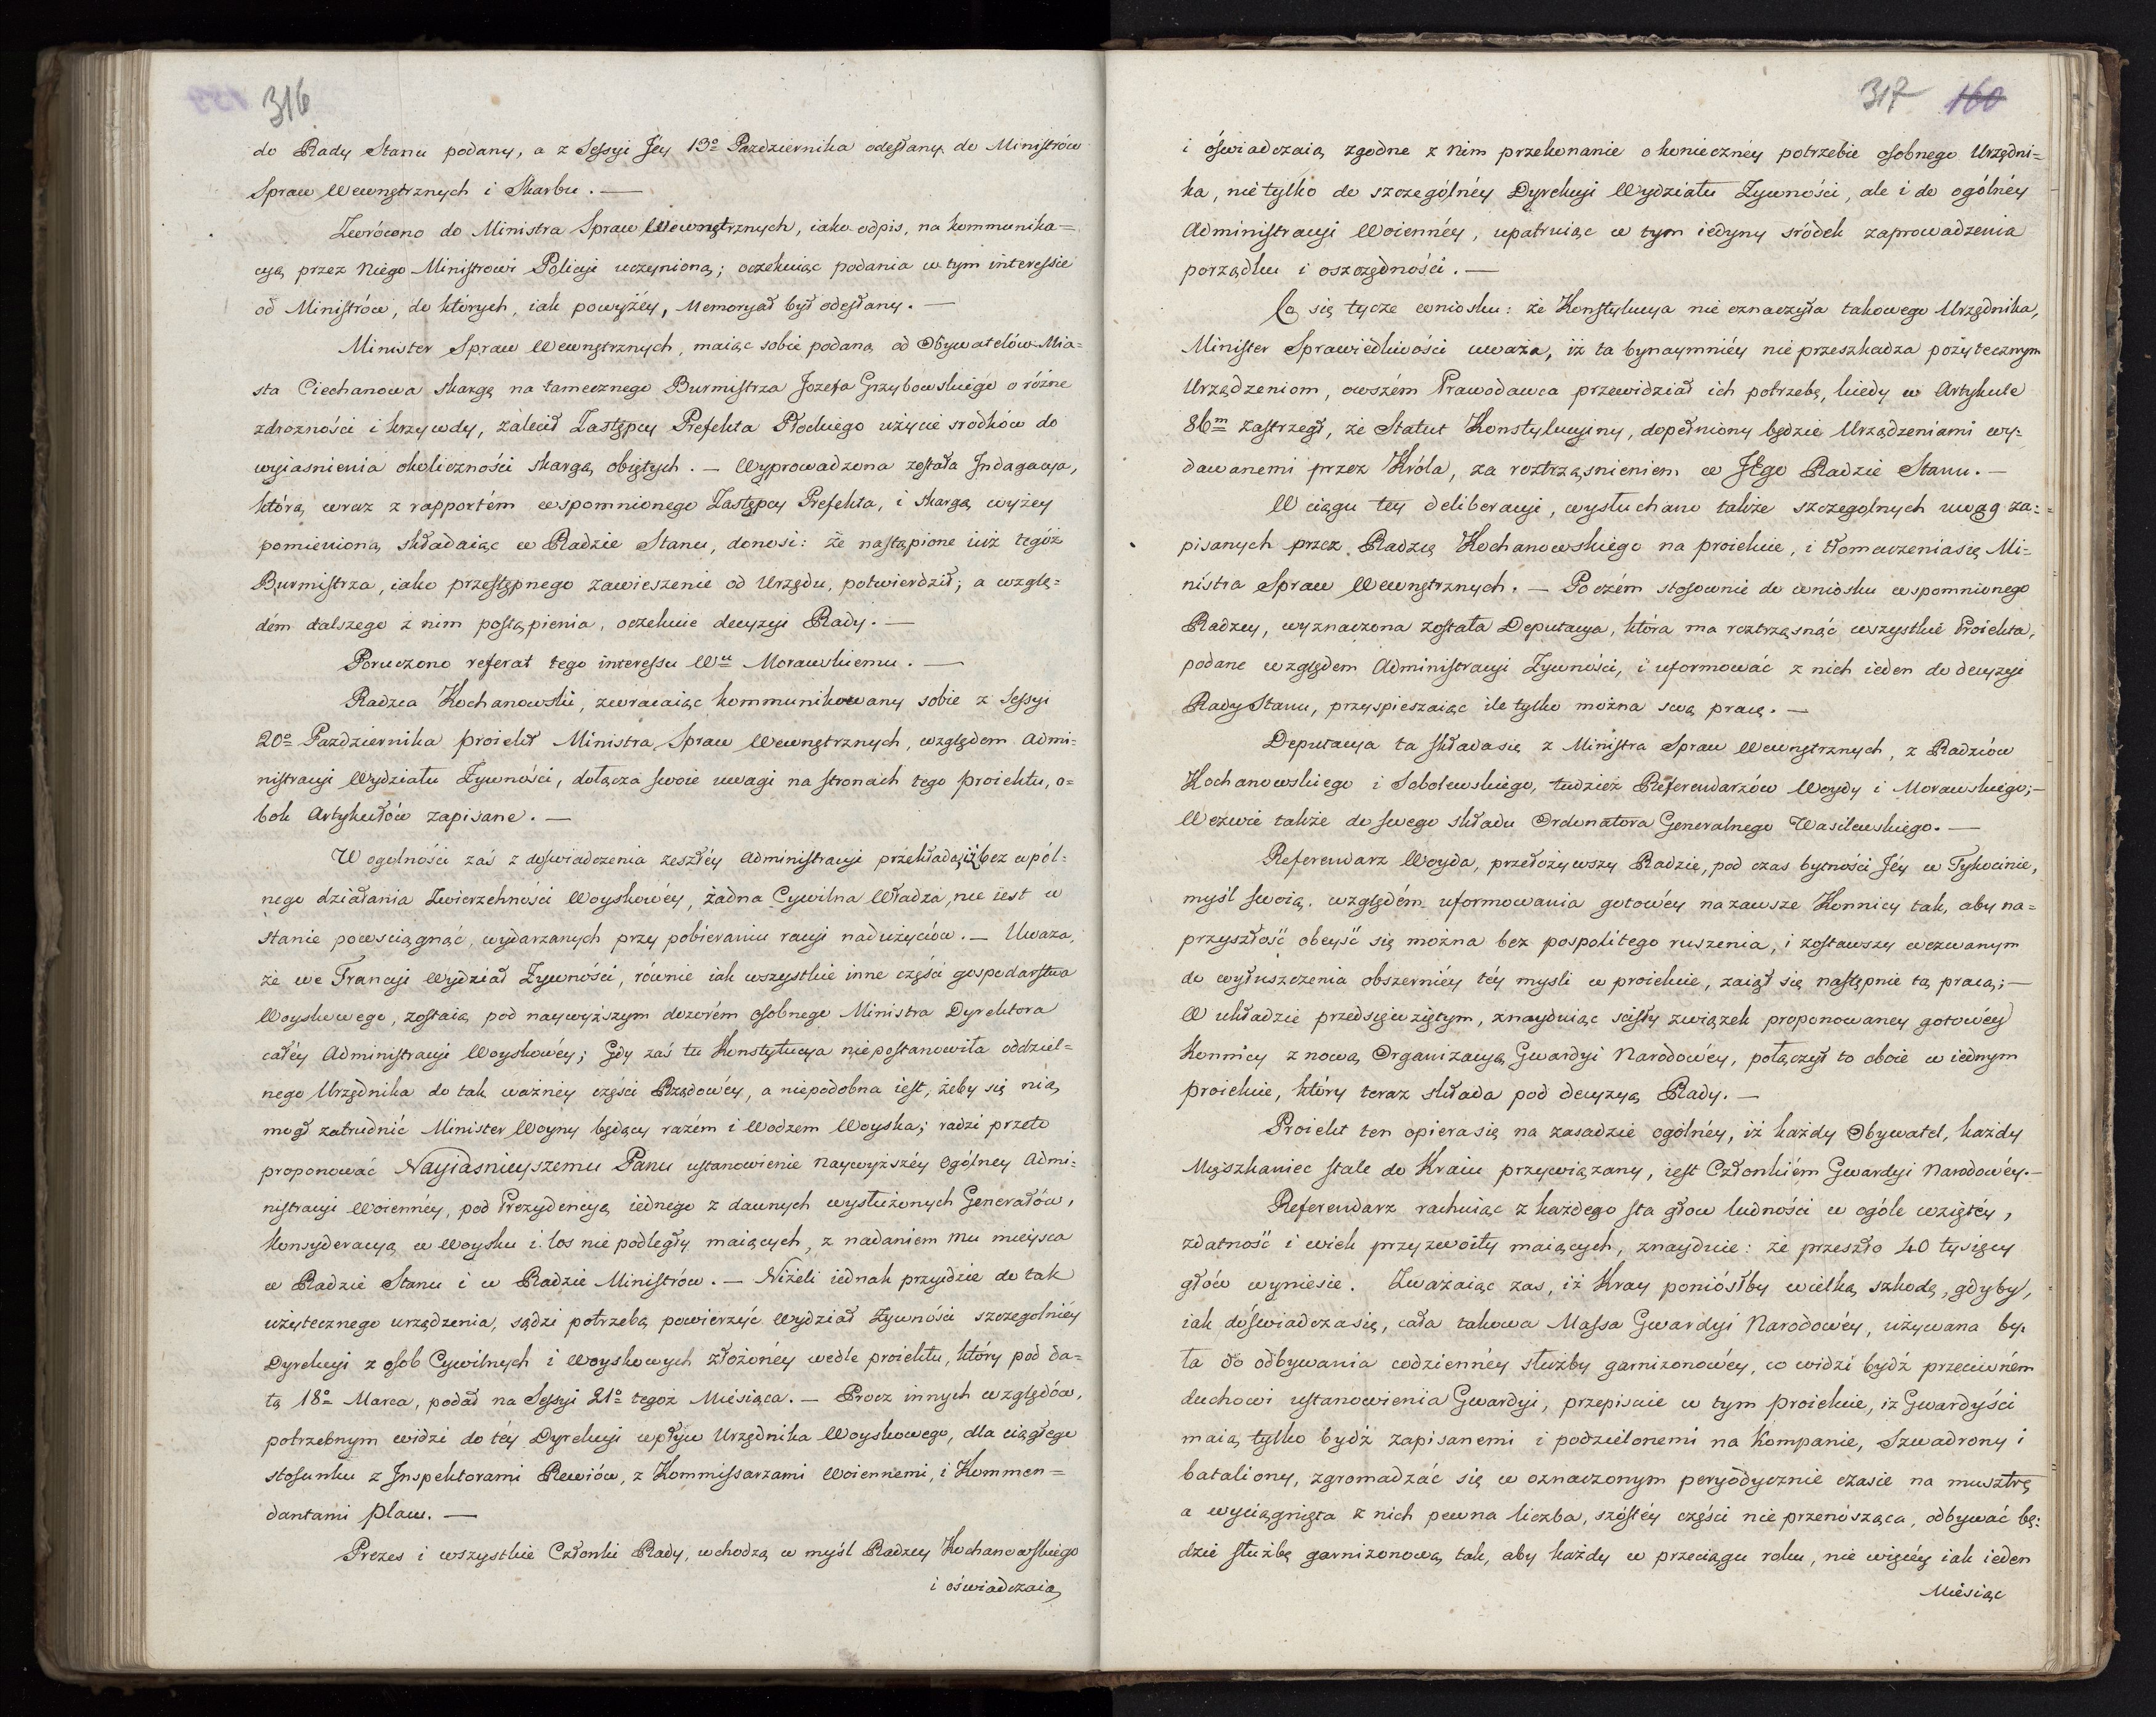 316
do Rady Stanu podany, a z Sessyi Jéy 13º Pazdziernika odesłany do Ministrów
Spraw Wewnętrznych i Skarbu. —
Zwrócono do Ministra Spraw Wewnętrznych, iako odpis, na kommunika=
cyą przez Niego Ministrowi Policyi uczynioną; oczekuiąc podania w tym interessie
od Ministrów, do których, iak powyżéy, Memoryał był odesłany. —
Minister Spraw Wewnętrznych, maiąc sobie podaną od Obywatelów Mia=
sta Ciechanowa skargę na tamecznego Burmistrza Jozefa Grzybowskiego o różne
zdrozności i krzywdy, zalecił Zastępcy Prefekta Płockiego użycie srodków do
wyiasnienia okoliczności skargą obiętych. — Wyprowadzona została Indagacya,
którą wraz z rapportém wspomnionego Zastępcy Prefekta, i skargą wyżey
pomienioną składaiąc w Radzie Stanu, donosi: że nastąpione iuż tegóż
Burmistrza, iako przestępnego zawieszenie od Urzędu, potwierdził; a wzglę=
dém dalszego z nim postąpienia, oczekuie decyzyi Rady. —
Poruczono referat tego interessu Wu Morawskiemu. —
Radzca Kochanowski, zwracaiąc kommunikowany sobie z Sessyi
20º Pazdziernika proiekt Ministra Spraw Wewnętrznych, względem Admi=
nistracyi Wydziału Żywności, dołącza swoie uwagi na stronach tego proiektu, o=
bok Artykułów zapisane. —
W ogólności zaś z doswiadczenia zeszłéy Administracyi przekłada, iż bez wpól=
nego działania Zwierzchności Woyskowéy, żadna Cywilna Władza, nie iest w
stanie powsciągnąć, wydarzanych przy pobieraniu racyi nadużyciów. — Uważa,
że we Francyi Wydział Żywności, równie iak wszystkie inne części gospodarstwa
Woyskowego, zostaią pod naywyższym dozorém osobnego Ministra Dyrektora
całéy Administracyi Woyskowéy; Gdy zaś tu Konstytucya nie postanowiła oddziel=
nego Urzędnika do tak ważnéy części Rządowéy, a niepodobna iest, żeby się nią
mogł zatrudnić Minister Woyny będący razém i Wodzem Woyska; radzi przeto
proponować Nayiasnieyszemu Panu ustanowienie Naywyższéy Ogólney Admi=
nistracyi Woiennéy, pod Prezydencyą iednego z dawnych wysłużonych Generałów,
konsyderacyą w Woysku i los niepodległy maiących, z nadaniem mu mieysca
w Radzie Stanu i w Radzie Ministrów. — Niżeli iednak przyidzie do tak
użytecznego urządzenia, sądzi potrzebą powierzyć Wydział Żywności szczegolniéy
Dyrekcyi z osob Cywilnych i Woyskowych złożonéy wedle proiektu, który pod da=
tą 18º Marca, podał na Sessyi 21º tegoż Miesiąca. — Procz innych względów,
potrzebnym widzi do téy Dyrekcyi wpływ Urzędnika Woyskowego, dla ciągłego
stosunku z Inspektorami Rewiów, z Kommissarzami Woiennemi, i Kommen=
dantami placu. —
Prezes i wszystkie Członki Rady, wchodzą w myśl Radzcy Kochanowskiego
i oświadczaią
317 160
i óświadczaią zgodne z nim przekonanie o koniecznéy potrzebie osobnego Urzędni=
ka, nietylko do szczególnéy Dyrekcyi Wydziału Żywności, ale i do ogólnéy
Administracyi Woiennéy, upatruiąc w tym iedyny srodek zaprowadzenia
porządku i oszczędności. —
Co się tycze wniosku: że Konstytucya nie oznaczyła takowego Urzędnika,
Minister Sprawiedliwości uważa, iż ta bynaymniéy nie przeszkadza pożytecznym
Urządzeniom, owszém Prawodawca przewidział ich potrzebę, kiedy w Artykule
86m zastrzegł, że Statut Konstytucyiny, dopełniony będzie Urządzeniami wy=
dawanemi przez Króla, za roztrząsnieniem w JEgo Radzie Stanu. —
W ciągu tey deliberacyi, wysłuchano także szczegolnych uwag za=
pisanych przez Radzcę Kochanowskiego na proiekcie, i tłomaczenia się Mi=
nistra Spraw Wewnętrznych. — Poczém stosownie do wniosku wspomnionego
Radzcy, wyznaczona została Deputacya, która ma roztrząsnąć wszystkie Proiekta,
podane względem Administracyi Żywności, i uformować z nich ieden do decyzyi
Rady Stanu, przyspieszaiąc ile tylko można swą pracę. —
Deputacya ta składa się z Ministra Spraw Wewnętrznych, z Radzców
Kochanowskiego i Sobolewskiego, tudzież Referendarzów Woydy i Morawskiego; —
Wezwie także do swego składu Ordonatora Generalnego Wasilewskiego. —
Referendarz Woyda, przełożywszy Radzie, pod czas bytności Jéy w Tykocinie,
myśl swoią względém uformowania gotowéy nazawsze Konnicy tak, aby na=
przyszłość obeyść się można bez pospolitego ruszenia, i zostawszy wezwanym
do wyłuszczenia obszerniéy téy mysli w proiekcie, zaiął się następnie tą pracą; —
W układzie przedsięwziętym, znayduiąc scisły związek proponowaney gotowéy
Konnicy z nową Organizacyą Gwardyi Narodowéy, połączył to oboie w iednym
proiekcie, który teraz składa pod decyzyą Rady. —
Proiekt ten opiera się na zasadzie ogólnéy, iż każdy Obywatel, każdy
Mięszkaniec stale do Kraiu przywiązany, iest Członkiém Gwardyi Narodowéy. —
Referendarz rachuiąc z każdego sta głow ludności w ogóle wziętéy,
zdatność i wiek przyzwoity maiących, znayduie: że przeszło 40 tysięcy
głów wyniesie. Zważaiąc zas, iż Kray poniósłby wielką szkodę, gdyby,
iak doświadcza się, cała takowa Massa Gwardyi Narodowéy, używana by=
ła do odbywania codziennéy służby garnizonowéy, co widzi bydź przeciwném
duchowi ustanowienia Gwardyi, przepisuie w tym proiekcie, iż Gwardyści
maią tylko bydź zapisanemi i podzielonemi na Kompanie, Szwadrony i
bataliony, zgromadzać się w oznaczonym peryodycznie czasie na musztrę
a wyciągnięta z nich pewna liczba, szóstéy części nie przenosząca, odbywać bę=
dzie służbę garnizonową tak, aby każdy w przeciągu roku, nie więcéy iak ieden
Miesiąc